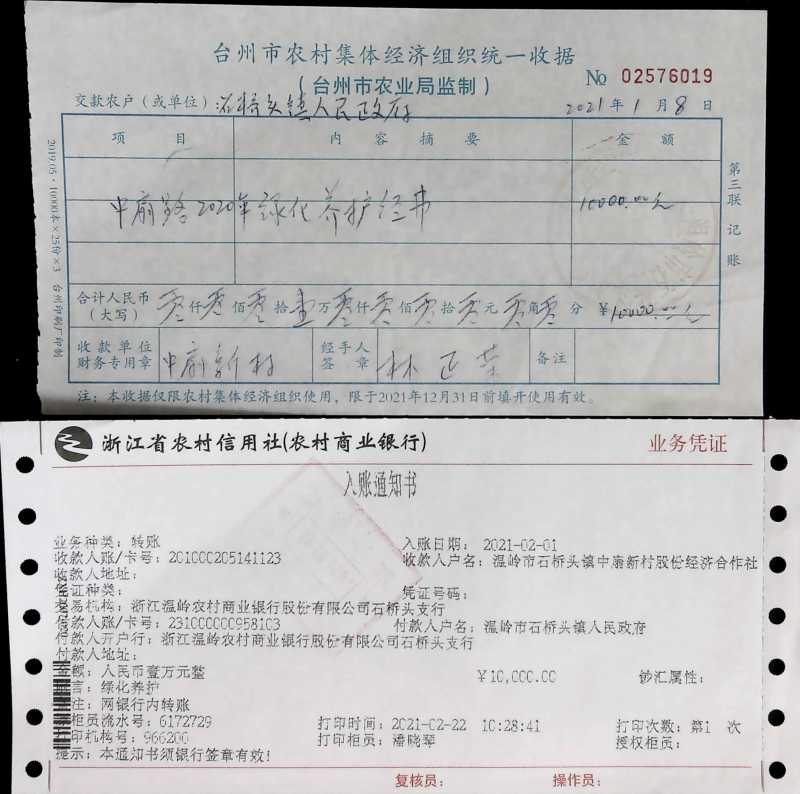 台州市农村集体经济组织统一收据
(台州市农业局监制)
№ 02576019
交款农户(或单位) 石桥头镇人民政府 2021年1月8日
项 目 内 容 摘 要 金 额
中扇路2020年绿化养护经费 10000.00元
合计人民币(大写) 零仟零佰零拾壹万零仟零佰零拾零元零角零分 ¥10000.00元
收款单位财务专用章 中扇新村 经手人签章 林正荣 备注
注:本收据仅限农村集体经济组织使用,限于2021年12月31日前填开使用有效。
第三联 记账
2019.05·10000本×25份×3 台州印刷厂印制
浙江省农村信用社(农村商业银行) 业务凭证
入账通知书
业务种类:转账 入账日期: 2021-02-01
收款人账/卡号:201000205141123 收款人户名:温岭市石桥头镇中扇新村股份经济合作社
收款人地址:
凭证种类: 凭证号码:
交易机构:浙江温岭农村商业银行股份有限公司石桥头支行
付款人账/卡号:231000000958103 付款人户名:温岭市石桥头镇人民政府
付款人开户行:浙江温岭农村商业银行股份有限公司石桥头支行
付款人地址:
金额:人民币壹万元整 ¥10,000.00 钞汇属性:
附言:绿化养护
备注:网银行内转账
柜员流水号:6172729 打印时间:2021-02-22 10:28:41 打印次数:第1 次
打印机构号:966200 打印柜员:潘晓琴 授权柜员:
提示:本通知书须银行签章有效!
复核员: 操作员: